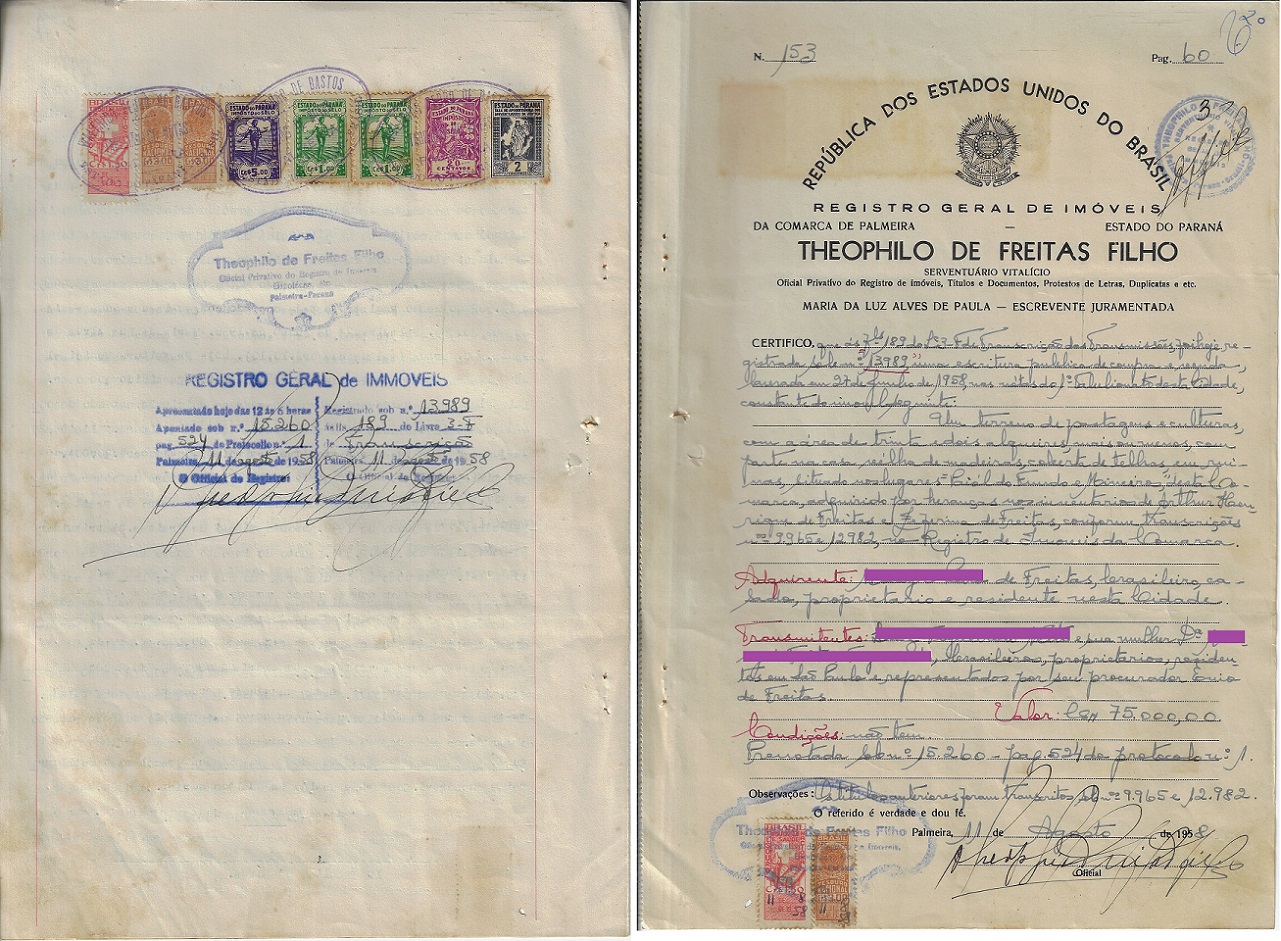 ESTADO DO PARANÁ
IMPOSTO DO SELO
CR$ 5,00
ESTADO DO PARANÁ
IMPOSTO DO SELO
CR$ 1,00
ESTADO DO PARANÁ
IMPOSTO DO SELO
CR$ 1,00
ESTADO DO PARANÁ
CENTAVOS
ESTADO DO PARANÁ
2
Theophilo de Freitas Filho
Oficial Privativo do Registro de Imoveis,
Palmeira-Paraná
REGISTRO GERAL de IMMOVEIS
Apresentado hoje das 12 ás 6 horas
Apontado sob n.º 15.260
pag. 524 do Protocollo n.º 1
Palmeira, 11 de agosto de 1958
O Official do Registro
Registrado sob n.º 13989
á fls. 189 do Livro 3-F
de Transcrição
Palmeira, 11 de agosto de 1958
O Official do Registro
N. 153
Pag. 60
REPÚBLICA DOS ESTADOS UNIDOS DO BRASIL
REGISTRO GERAL DE IMÓVEIS
DA COMARCA DE PALMEIRA — ESTADO DO PARANÁ
THEOPHILO DE FREITAS FILHO
SERVENTUÁRIO VITALÍCIO
Oficial Privativo do Registro de imóveis, Títulos e Documentos, Protestos de Letras, Duplicatas e etc.
MARIA DA LUZ ALVES DE PAULA — ESCREVENTE JURAMENTADA
CERTIFICO, que ás fls 189 do Lº 3-F de Transcrição das Transmissões, foi hoje re-
gistrada sob nº "13989" uma escritura publica de compra e venda,
lavrada em 27 de junho de 1958, nas notas do 1º Tabelionato desta Cidade,
constante do imovel seguinte:
Um terreno de pastagens e culturas,
com a área de trinta e dois alqueires, mais ou menos, com
parte na casa velha de madeiras, coberta de telhas, em rui-
nas, situado nos lugares "Faxinal do Fundo e Mineiros", desta Co-
marca, adquirido por herança nos inventarios de Arthur Hen-
rique de Freitas e Zeferina de Freitas, conforme transcrições
nºs 9.965 e 12982, no Registro de Imoveis da Comarca.
Adquirente: de Freitas, brasileiro, ca-
sado, proprietario e residente nesta Cidade.
Transmitentes: e sua mulher Dª
, brasileiros, proprietarios, residen-
tes em São Paulo e representados por seu procurador
de Freitas.
Valor: Cr$ 75.000,00
Condições: não tem.
Prenotada sob nº 15.260 - pag. 524 do protocolo nº 1.
Observações: Os titulos anteriores foram transcritos sob nºs 9.965 e 12.982.
O referido é verdade e dou fé.
Palmeira, 11 de Agosto de 1958
Oficial
Theophilo de Freitas Filho
BRASIL
BRASIL
11 8 58
11 8 58